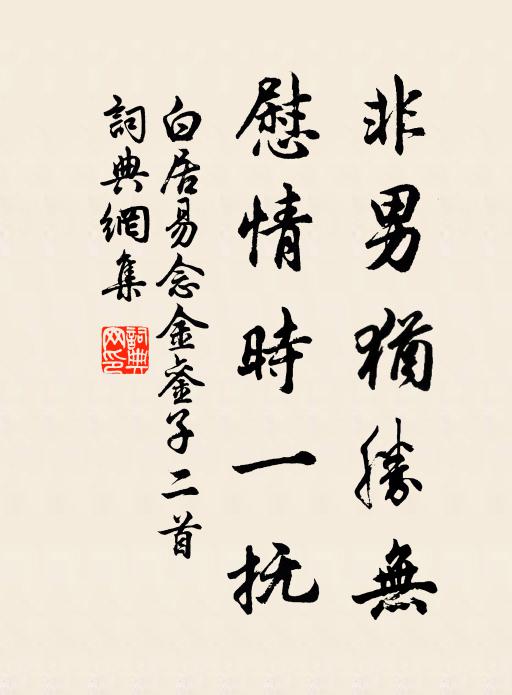 非男猶勝無
慰情時一抚
白居易念金銮子二首
詞典網集
詞典网印